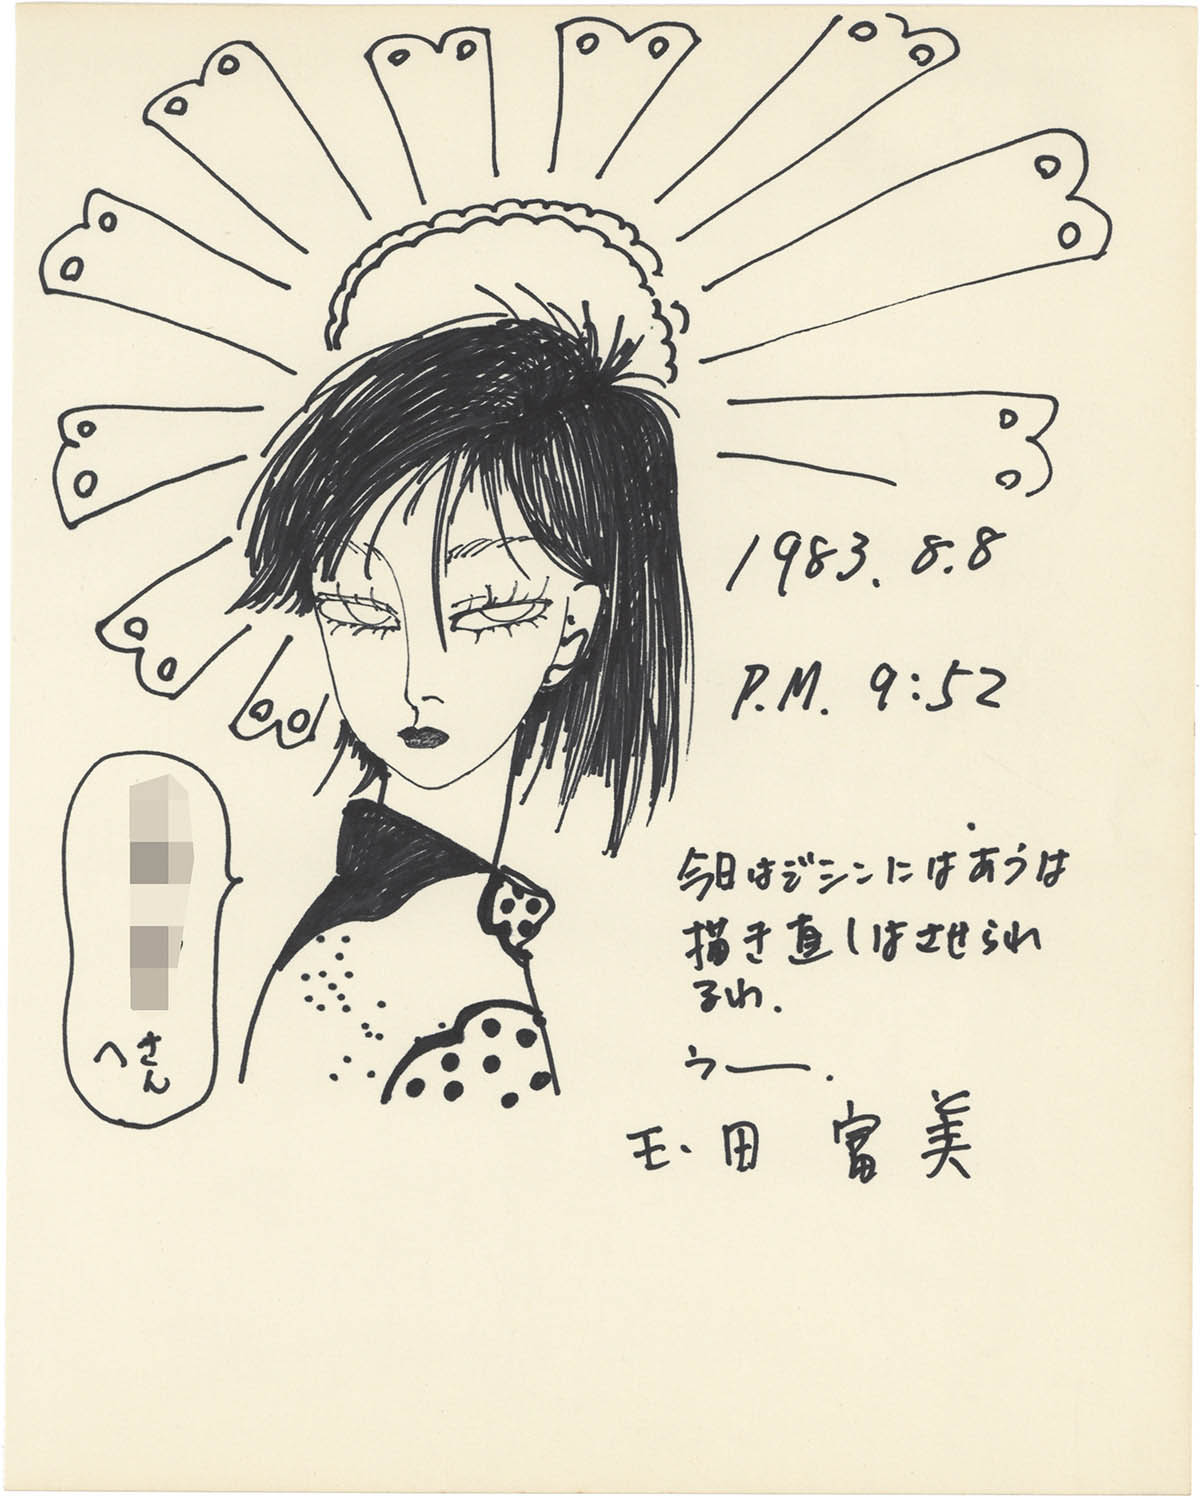 1983. 8.8
P.M. 9:52
今日はジシンにはあうは
描き直しはさせられ
るわ.
うー.
玉田 富美
さん
へ